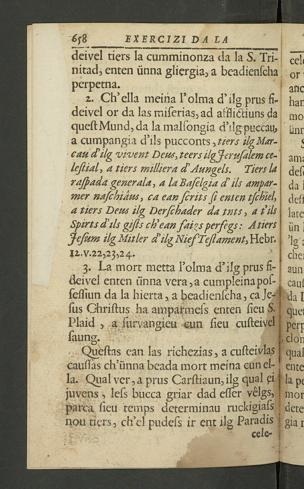 658 EXERCIZI DA LA
deivel tiers la cumminonza da la S. Tri-
nitad, enten ünna gliergia, a beadienscha
perpetna.
2. Ch'ella meina l'olma d'ilg prus fi-
deivel or da las miserias, ad afflictiuns da
quest Mund, da la malsongia d'ilg puccau,
a cumpangia d'ils pucconts, tiers ilg Mar-
cau d'ilg vivent Deus, teers ilg Jerusalem ce-
lestial, a tiers milliera d'Aungels. Tiers la
raspada generala, a la Baselgia d'ils ampar-
mer naschidus, ca ean scrits si enten tschiel,
a tiers Deus ilg Derschader da tnts, a t'ils
Spirts d'ils gists ch'ean faigs perfegs: A tiers
Jesum ilg Mitler d'ilg Nief Testament, Hebr.
12. v. 22, 23, 24.
3. La mort metta l'olma d'ilg prus fi-
deivel enten ünna vera, a cumpleina pos-
sessiun da la hierta, a beadienscha, ca Je-
sus Christus ha amparmess enten sieu S.
Plaid, a survangieu cun sieu custeivel
saung.
Questas ean las richezias, a custeivlas
caussas ch'ünna beada mort meina cun el-
la. Qual ver, a prus Carstiaun, ilg qual ei
juvens, less bucca griar dad esser vêlgs,
parca sieu temps determinau ruckigiass
nou tiers, ch'el pudess ir ent ilg Paradis
cele-